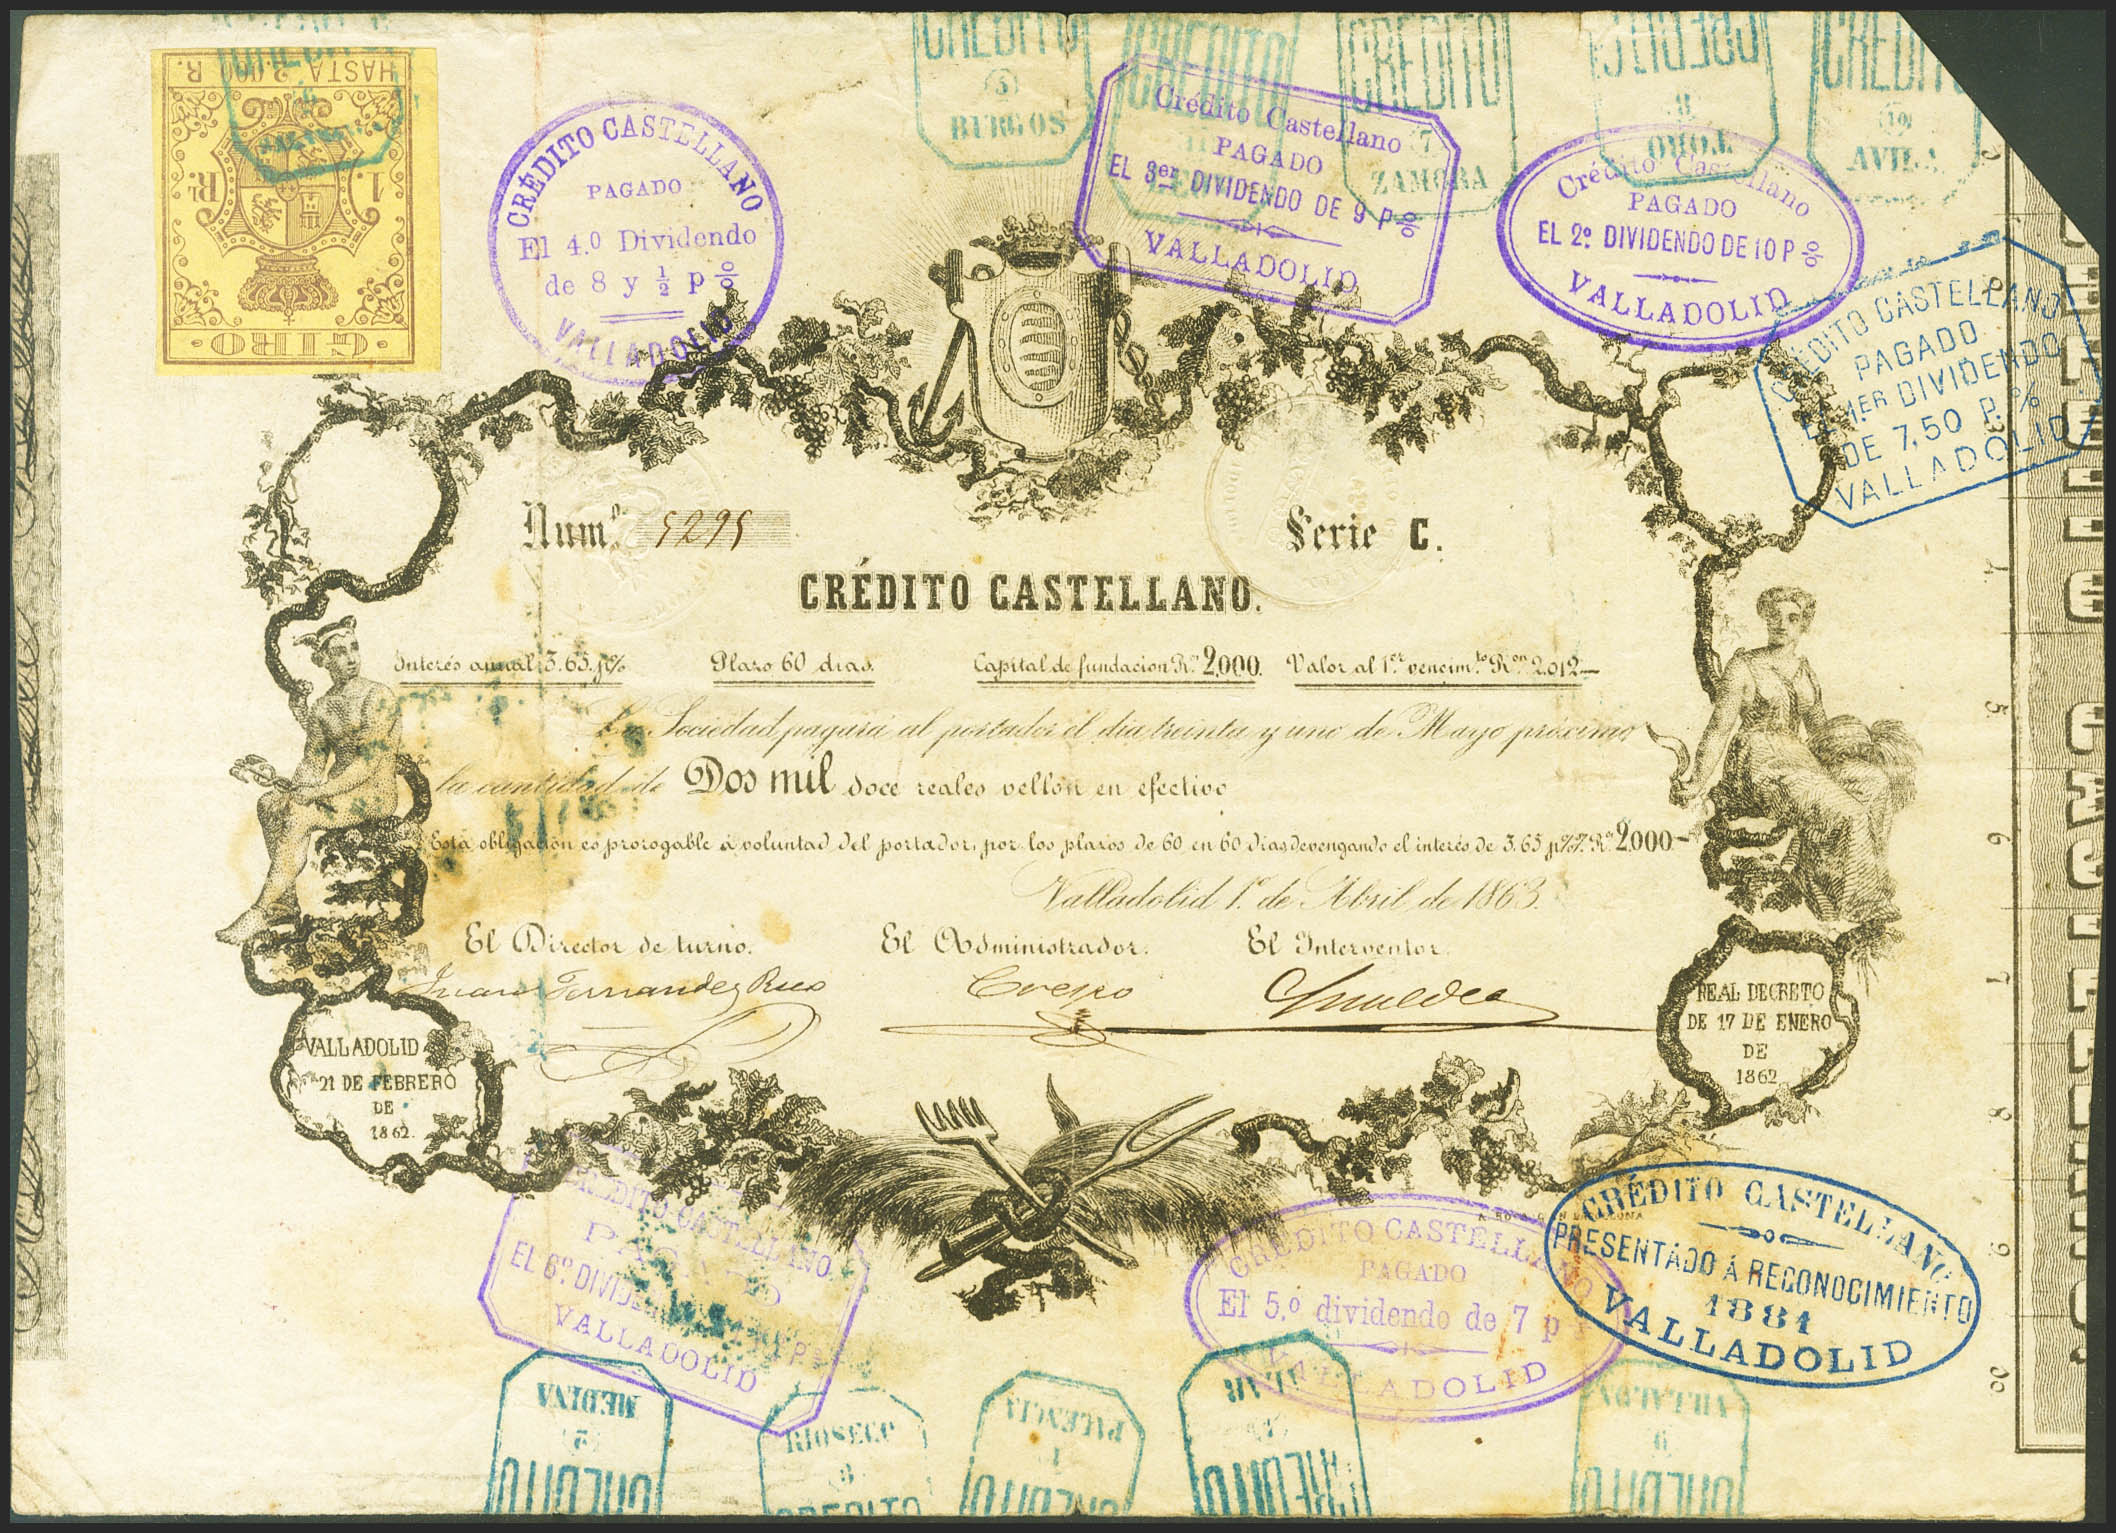 HASTA 2.000 R.
1. Rl.
· GIRO ·
CREDITO
(5)
BURGOS
CREDITO
CREDITO
7
ZAMORA
CREDITO
8
TORO
CREDITO
(10)
AVILA
CRÉDITO CASTELLANO
PAGADO
El 4.º Dividendo
de 8 y 1/2 p %
VALLADOLID
Crédito Castellano
PAGADO
EL 3er DIVIDENDO DE 9 P %
VALLADOLID
Crédito Castellano
PAGADO
EL 2º DIVIDENDO DE 10 P %
VALLADOLID
CRÉDITO CASTELLANO
PAGADO
EL 1ER DIVIDENDO
DE 7,50 P. %
VALLADOLID
Numº 5295
Serie C.
CRÉDITO CASTELLANO.
Interés anual 3.65 p%
Plazo 60 dias.
Capital de fundacion Rn 2,000.
Valor al 1er vencimto Ron 2.012—
La Sociedad pagará al portador el dia treinta y uno de Mayo próximo
la cantidad de Dos mil doce reales vellon en efectivo
Esta obligacion es prorogable á voluntad del portador, por los plazos de 60 en 60 dias devengando el interés de 3.65 p% Rn 2.000—
Valladolid 1º de Abril de 1863.
El Director de turno.
El Administrador.
El Interventor.
Juan Fernandez Rico
Crespo
VALLADOLID
21 DE FEBRERO
DE
1862.
REAL DECRETO
DE 17 DE ENERO
DE
1862
CREDITO CASTELLANO
PAGADO
EL 6º DIVIDENDO
VALLADOLID
CREDITO CASTELLANO
PAGADO
El 5.º dividendo de 7 p
VALLADOLID
CRÉDITO CASTELLANO
PRESENTADO Á RECONOCIMIENTO
1881
VALLADOLID
MEDINA
CREDITO
RIOSECO
CREDITO
PALENCIA
1
CREDITO
ALAR
CREDITO
VILLALON
CREDITO
5
6
7
8
9